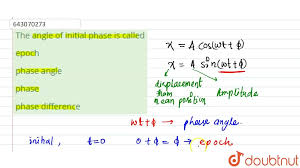 643070273
The angle of initial phase is called
epoch
phase angle
phase
phase difference
x = A cos(wt + ϕ)
x = A sin(wt + ϕ)
displacement from mean position
Amplitude
wt + ϕ → phease angle.
initial, t=0 0 + ϕ = ϕ → epoch.
doubtnut